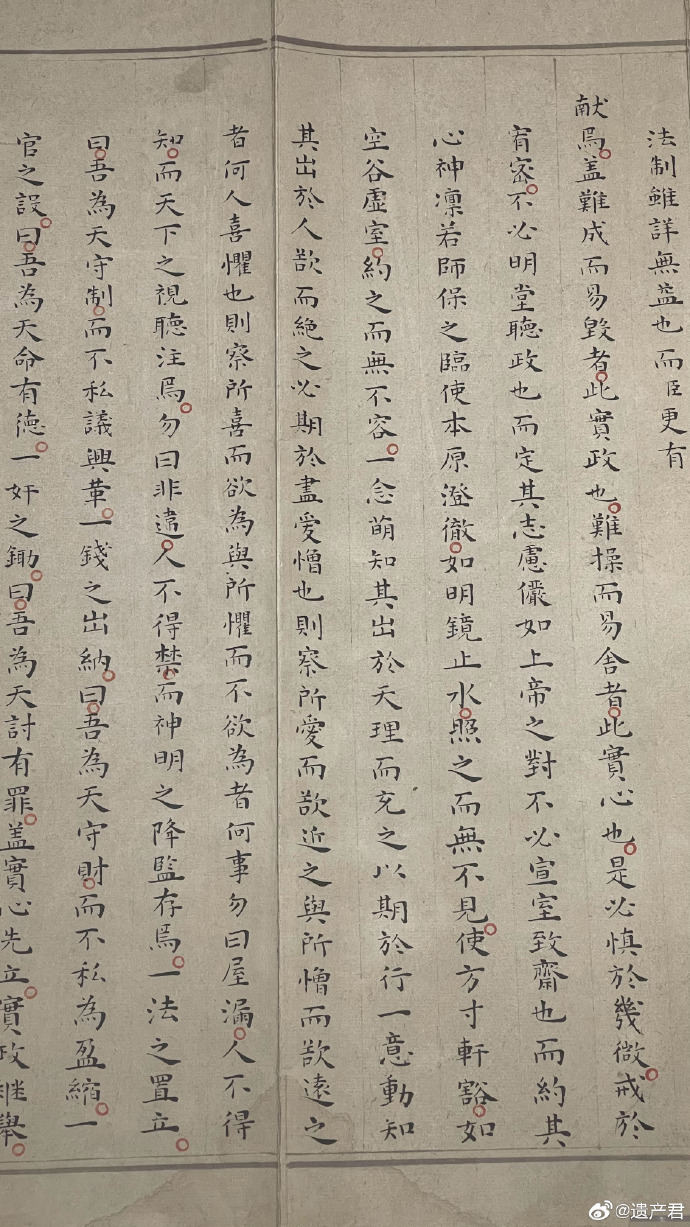 法制雖詳無益也而臣更有
献焉盖難成而易毀者此實政也難操而易舍者此實心也是必慎於幾微戒於
宥密不必明堂聽政也而定其志慮儼如上帝之對不必宣室致齋也而約其
心神凛若師保之臨使本原澄徹如明鏡止水照之而無不見使方寸軒豁如
空谷虛室約之而無不容一念萌知其出於天理而充之以期於行一意動知
其出於人欲而絶之必期於盡愛憎也則察所愛而欲近之與所憎而欲遠之
者何人喜懼也則察所喜而欲為與所懼而不欲為者何事勿曰屋漏人不得
知而天下之視聽注焉勿曰非違人不得禁而神明之降監存焉一法之置立
曰吾為天守制而不私議興革一錢之出納曰吾為天守財而不私為盈縮一
官之設曰吾為天命有德一奸之鋤曰吾為天討有罪盖實心先立實政继舉
@遗产君